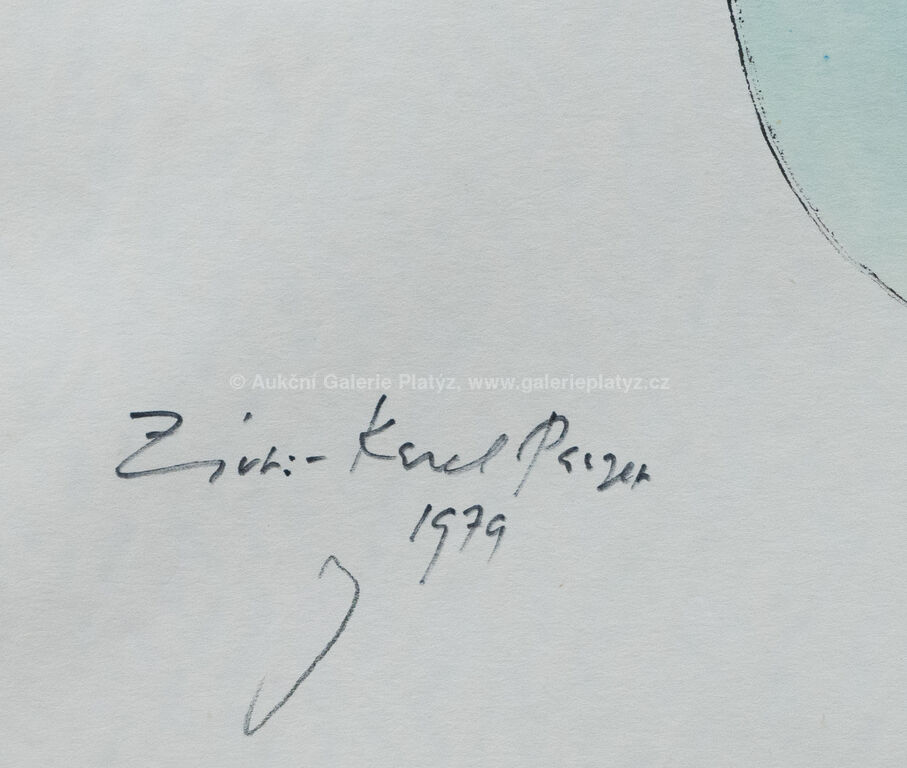 © Aukční Galerie Platýz, www.galerieplatyz.cz
Karel Pauzer
1979